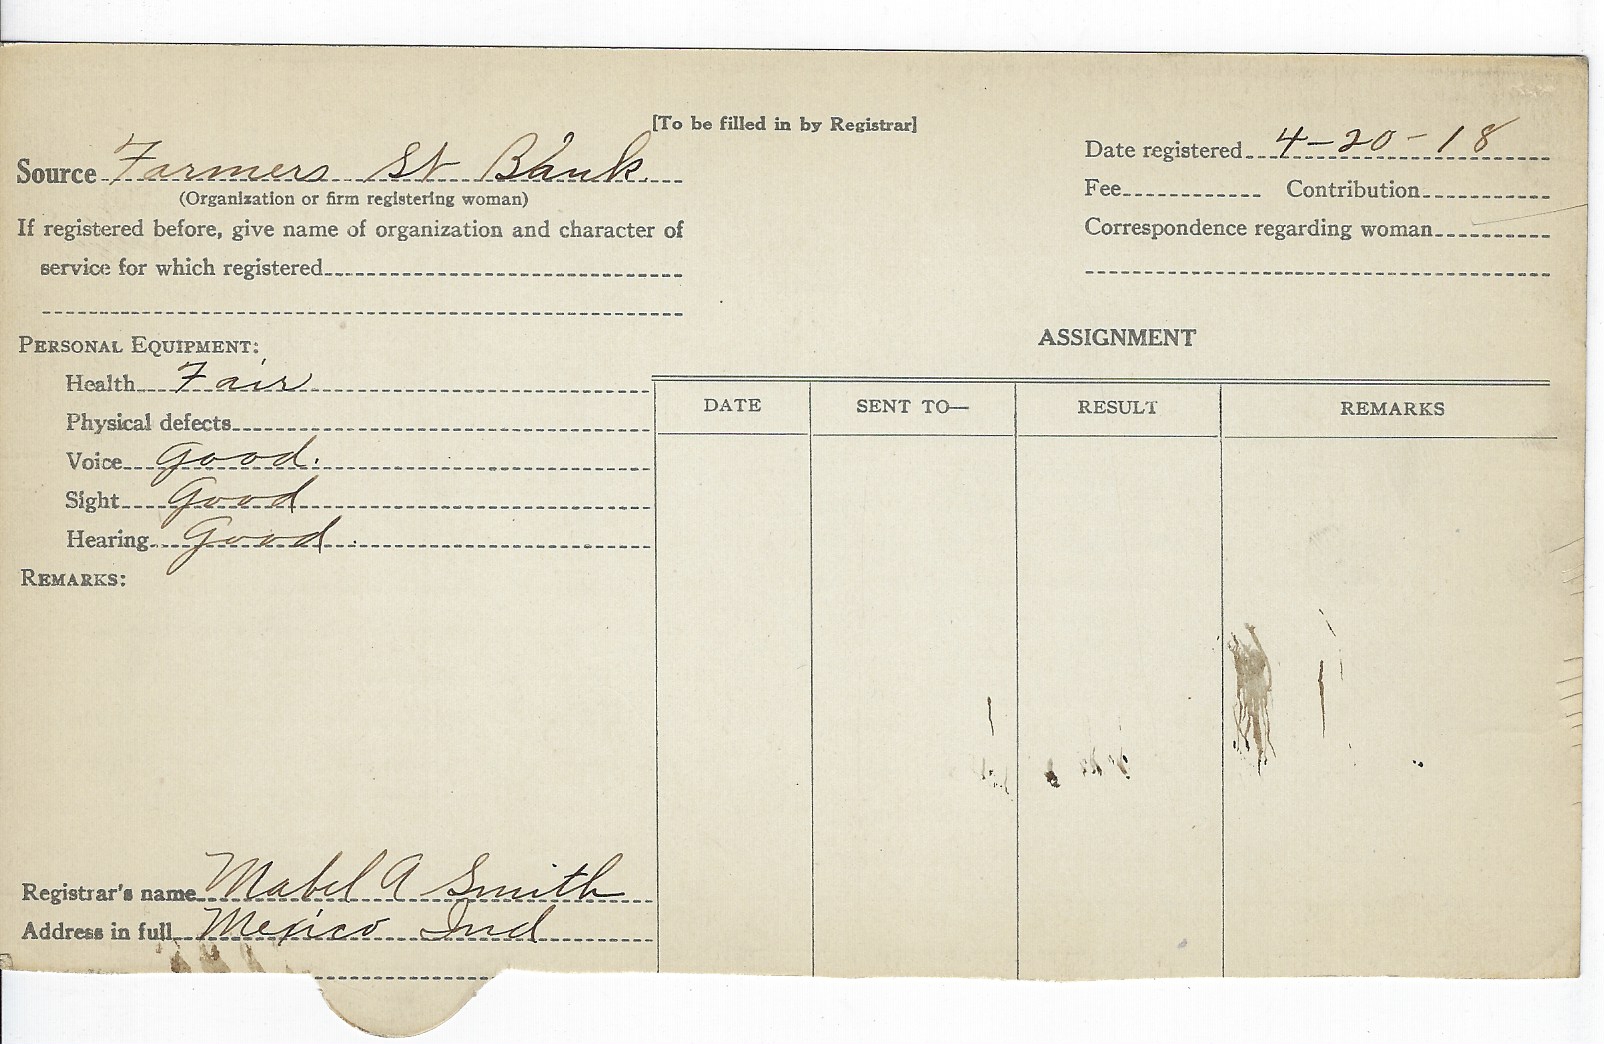 [To be filled in by Registrar]
Source Farmers St Bank
(Organization or firm registering woman)
If registered before, give name of organization and character of
service for which registered
Date registered 4-20-18
Fee Contribution
Correspondence regarding woman
PERSONAL EQUIPMENT:
Health Fair
Physical defects
Voice Good.
Sight Good
Hearing Good.
REMARKS:
ASSIGNMENT
DATE SENT TO— RESULT REMARKS
Registrar's name Mabel A Smith
Address in full Mexico Ind